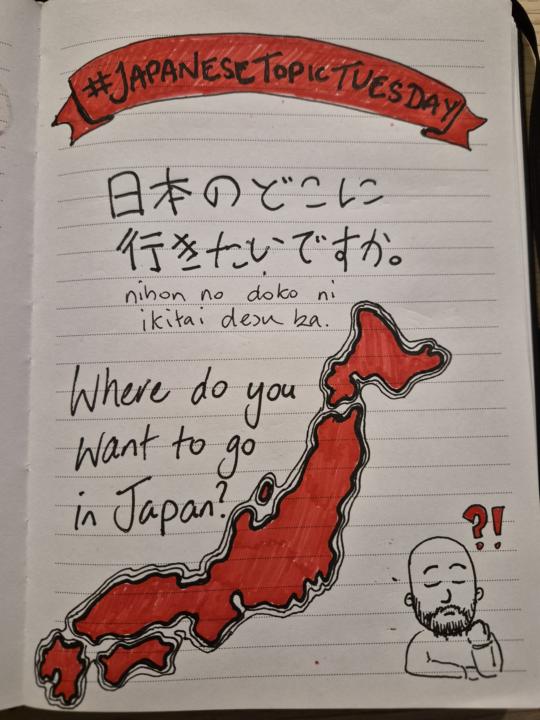 #JAPANESETOPICTUESDAY
日本のどこに
行きたいですか。
nihon no doko ni
ikitai desu ka.
Where do you
want to go
in Japan?
?!